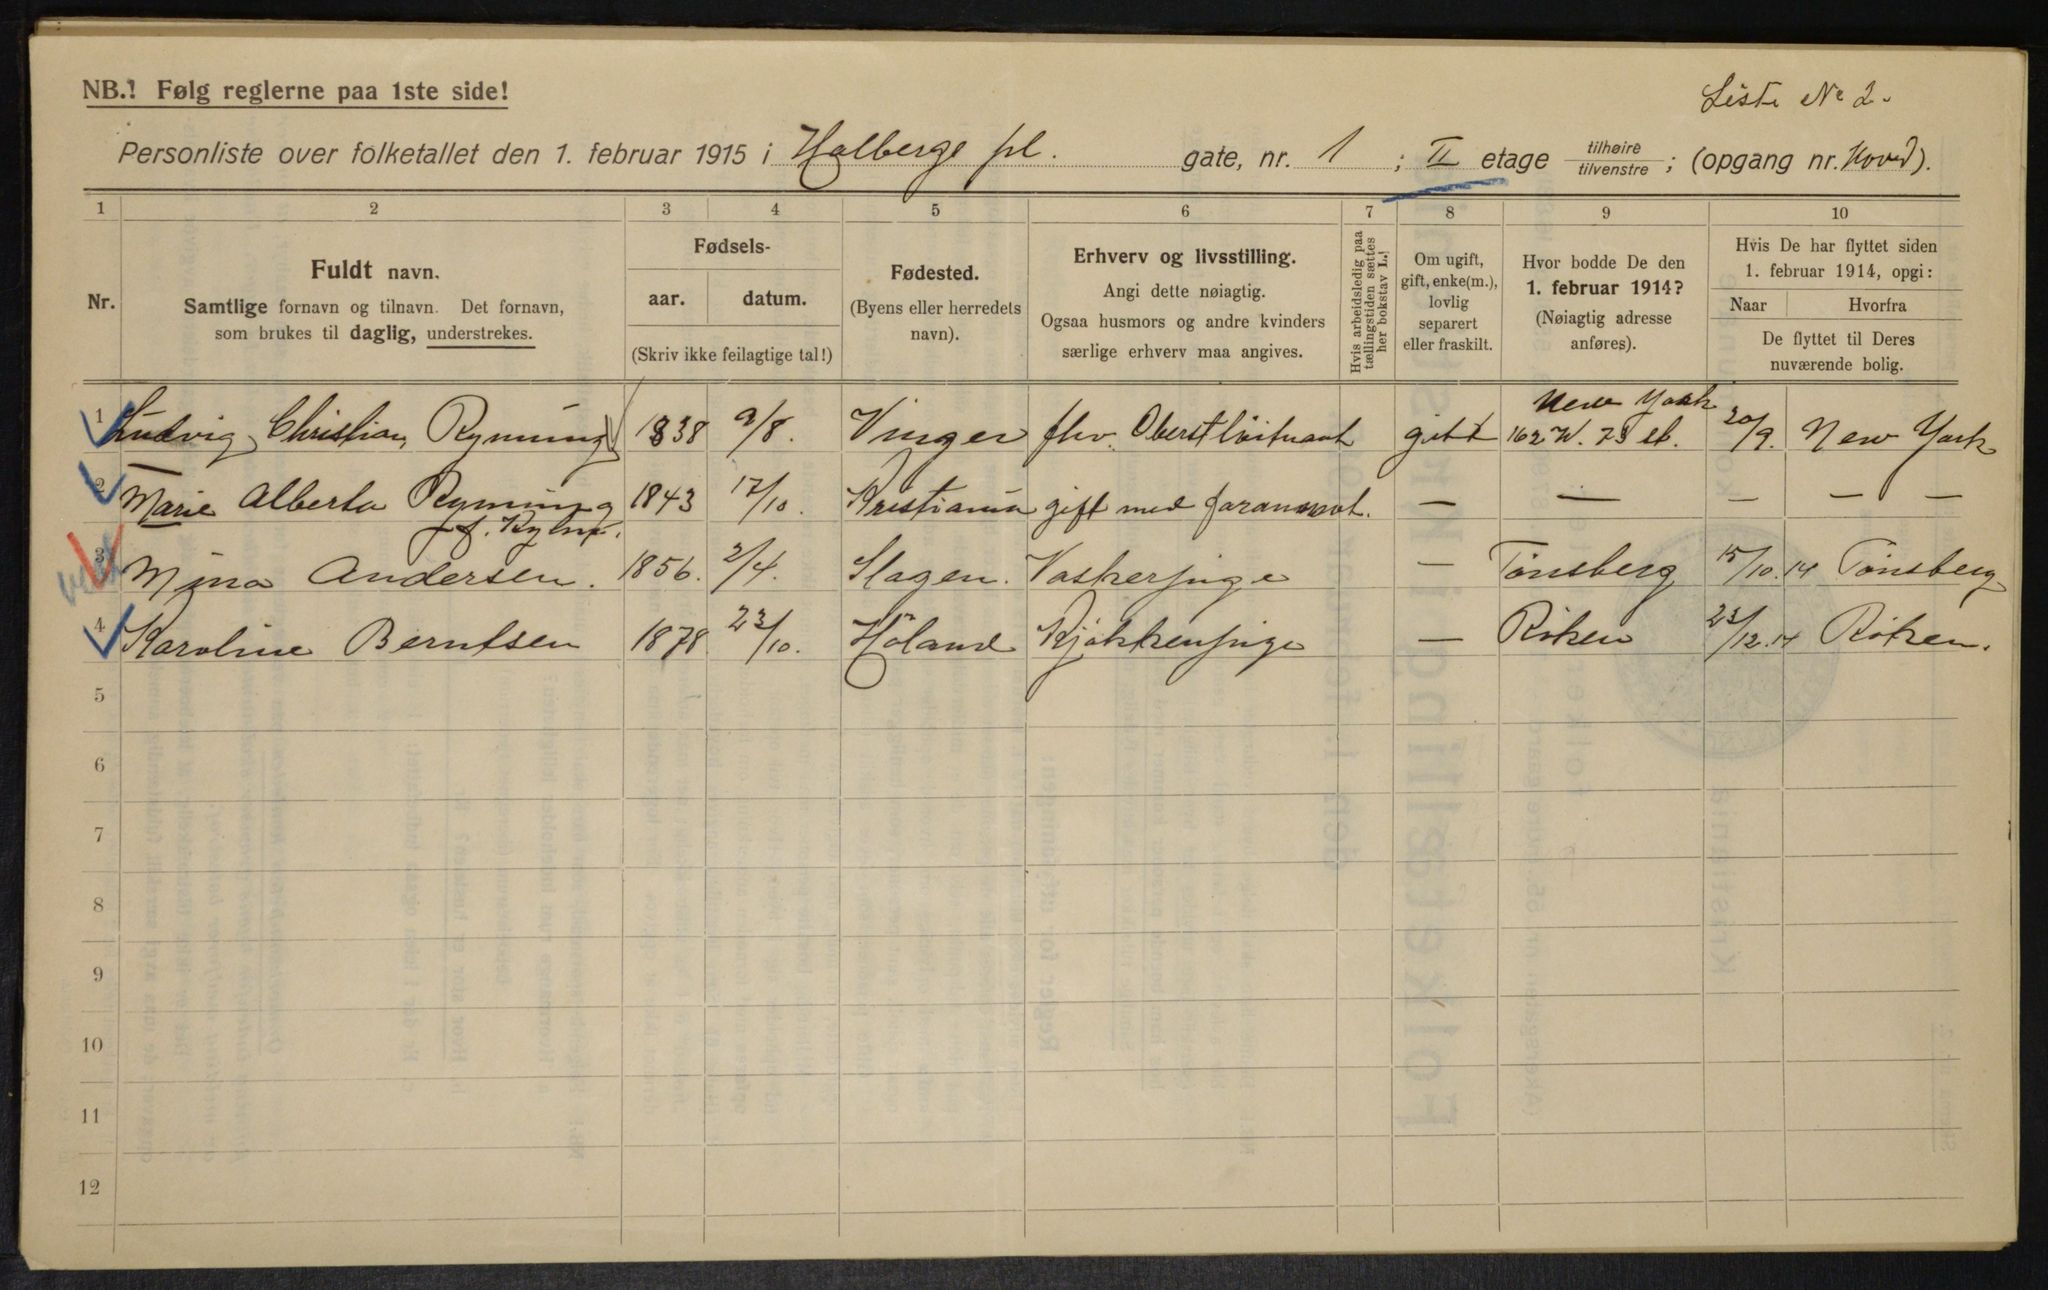 NB.! Følg reglerne paa 1ste side!
Liste No 2.
Personliste over folketallet den 1. februar 1915 i Holbergs pl. gate, nr. 1 ; II etage tilhøire/tilvenstre ; (opgang nr. Hoved).
1 2 3 4 5 6 7 8 9 10
Nr.
Fuldt navn.
Samtlige fornavn og tilnavn. Det fornavn,
som brukes til daglig, understrekes.
Fødsels-
aar. datum.
(Skriv ikke feilagtige tal!)
Fødested.
(Byens eller herredets
navn).
Erhverv og livsstilling.
Angi dette nøiagtig.
Ogsaa husmors og andre kvinders
særlige erhverv maa angives.
Hvis arbeidsledig paa
tællingstiden sættes
her bokstav L.!
Om ugift,
gift, enke(m.),
lovlig
separert
eller fraskilt.
Hvor bodde De den
1. februar 1914?
(Nøiagtig adresse
anføres).
Hvis De har flyttet siden
1. februar 1914, opgi:
Naar Hvorfra
De flyttet til Deres
nuværende bolig.
1 Ludvig Christian Ryming 1838 9/8. Vinger fhv. Oberstløitnant gift New York 162 W. 73 st. 20/9. New York
2 Marie Alberta Ryming 1843 17/10. Kristiania gift med foranmænt. — — — — —
f.
3 Mina Andersen. 1856. 2/4. Slagen. Vaskerpige — Tønsberg 15/10.14 Tønsberg
4 Karoline Berntsen 1878 23/10. Høland Kjøkkenpige — Røken 23/12.14 Røken.
5
6
7
8
9
10
11
12